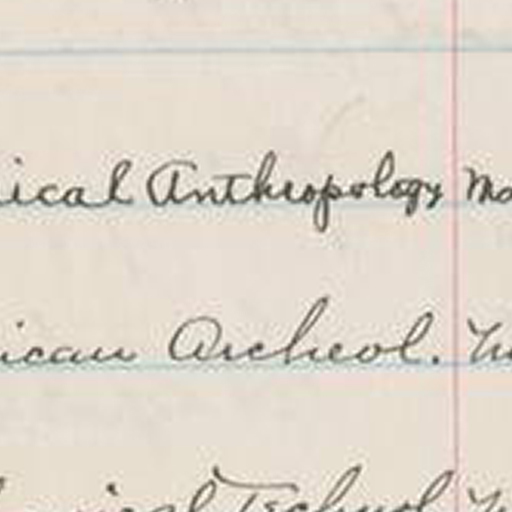 ical Anthropology Ma
ican Archeol.
ical Technol